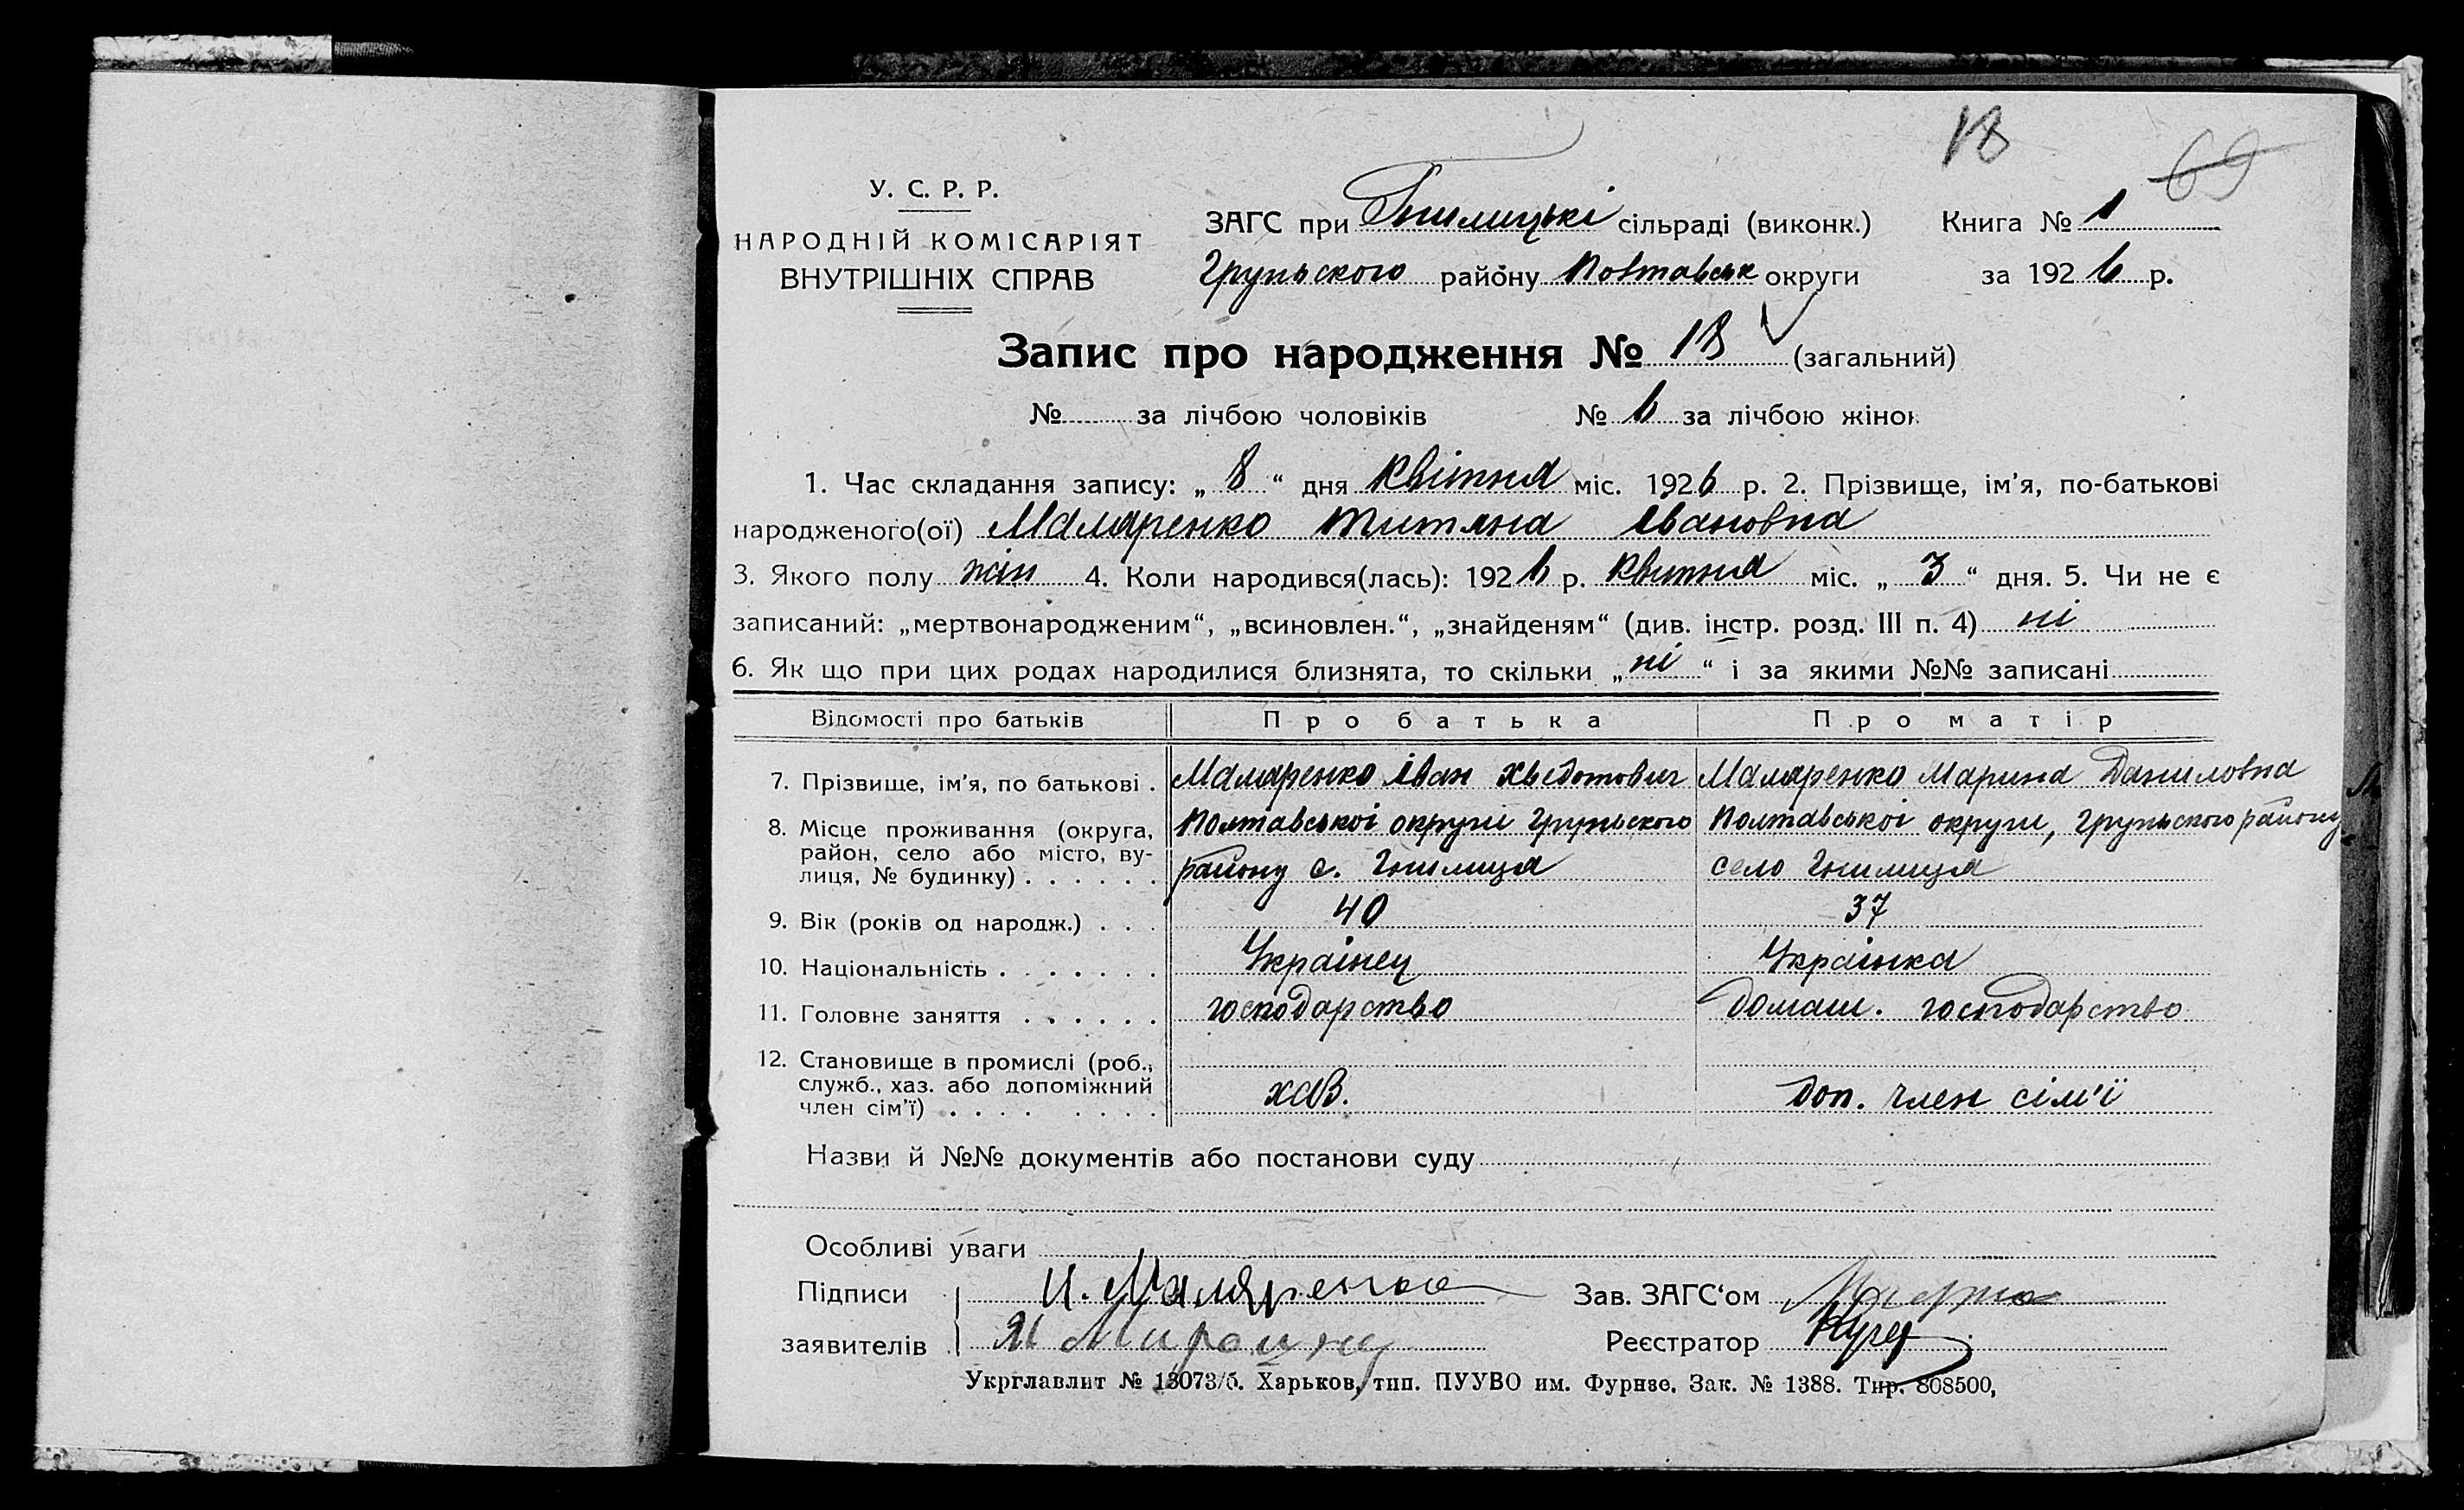 18
69
У. С. Р. Р.
НАРОДНІЙ КОМІСАРІЯТ
ВНУТРІШНІХ СПРАВ
ЗАГС при Гнилицькі сільраді (виконк.) Книга № 1
Груньского району Полтавськ округи за 1926 р.
Запис про народження № 18 (загальний)
№ за лічбою чоловіків № 6 за лічбою жінок
1. Час складання запису: „ 8 “ дня Квітня міс. 1926 р. 2. Прізвище, ім’я, по-батькові
народженого(ої) Маляренко Титяна Івановна
3. Якого полу жін 4. Коли народився(лась): 1926 р. Квитня міс. „ 3 “ дня. 5. Чи не є
записаний: „мертвонародженим“, „всиновлен.“, „знайденям“ (див. інстр. розд. III п. 4) ні
6. Як що при цих родах народилися близнята, то скільки „ ні “ і за якими №№ записані
Відомості про батьків Про батька Про матір
7. Прізвище, ім’я, по батькові . Маляренко Іван Хведотович Маляренко Марина Даниловна
8. Місце проживання (округа, Полтавськоі округи Груньского Полтавськоі округи, Груньского району
район, село або місто, ву-
лиця, № будинку) . . . . . . району с. Гнилиця село Гнилиця
9. Вік (років од народж.) . . . 40 37
10. Національність . . . . . . . Украінец Украінка
11. Головне заняття . . . . . . господарство домаш. господарство
12. Становище в промислі (роб.,
служб., хаз. або допоміжний
член сім’ї) . . . . . . . . хаз. доп. член сім’ї
Назви й №№ документів або постанови суду
Особливі уваги
Підписи И. Маляренко Зав. ЗАГС‘ом
заявителів Реєстратор
Укрглавлит № 13073/б. Харьков, тип. ПУУВО им. Фрунзе. Зак. № 1388. Тир. 808500,